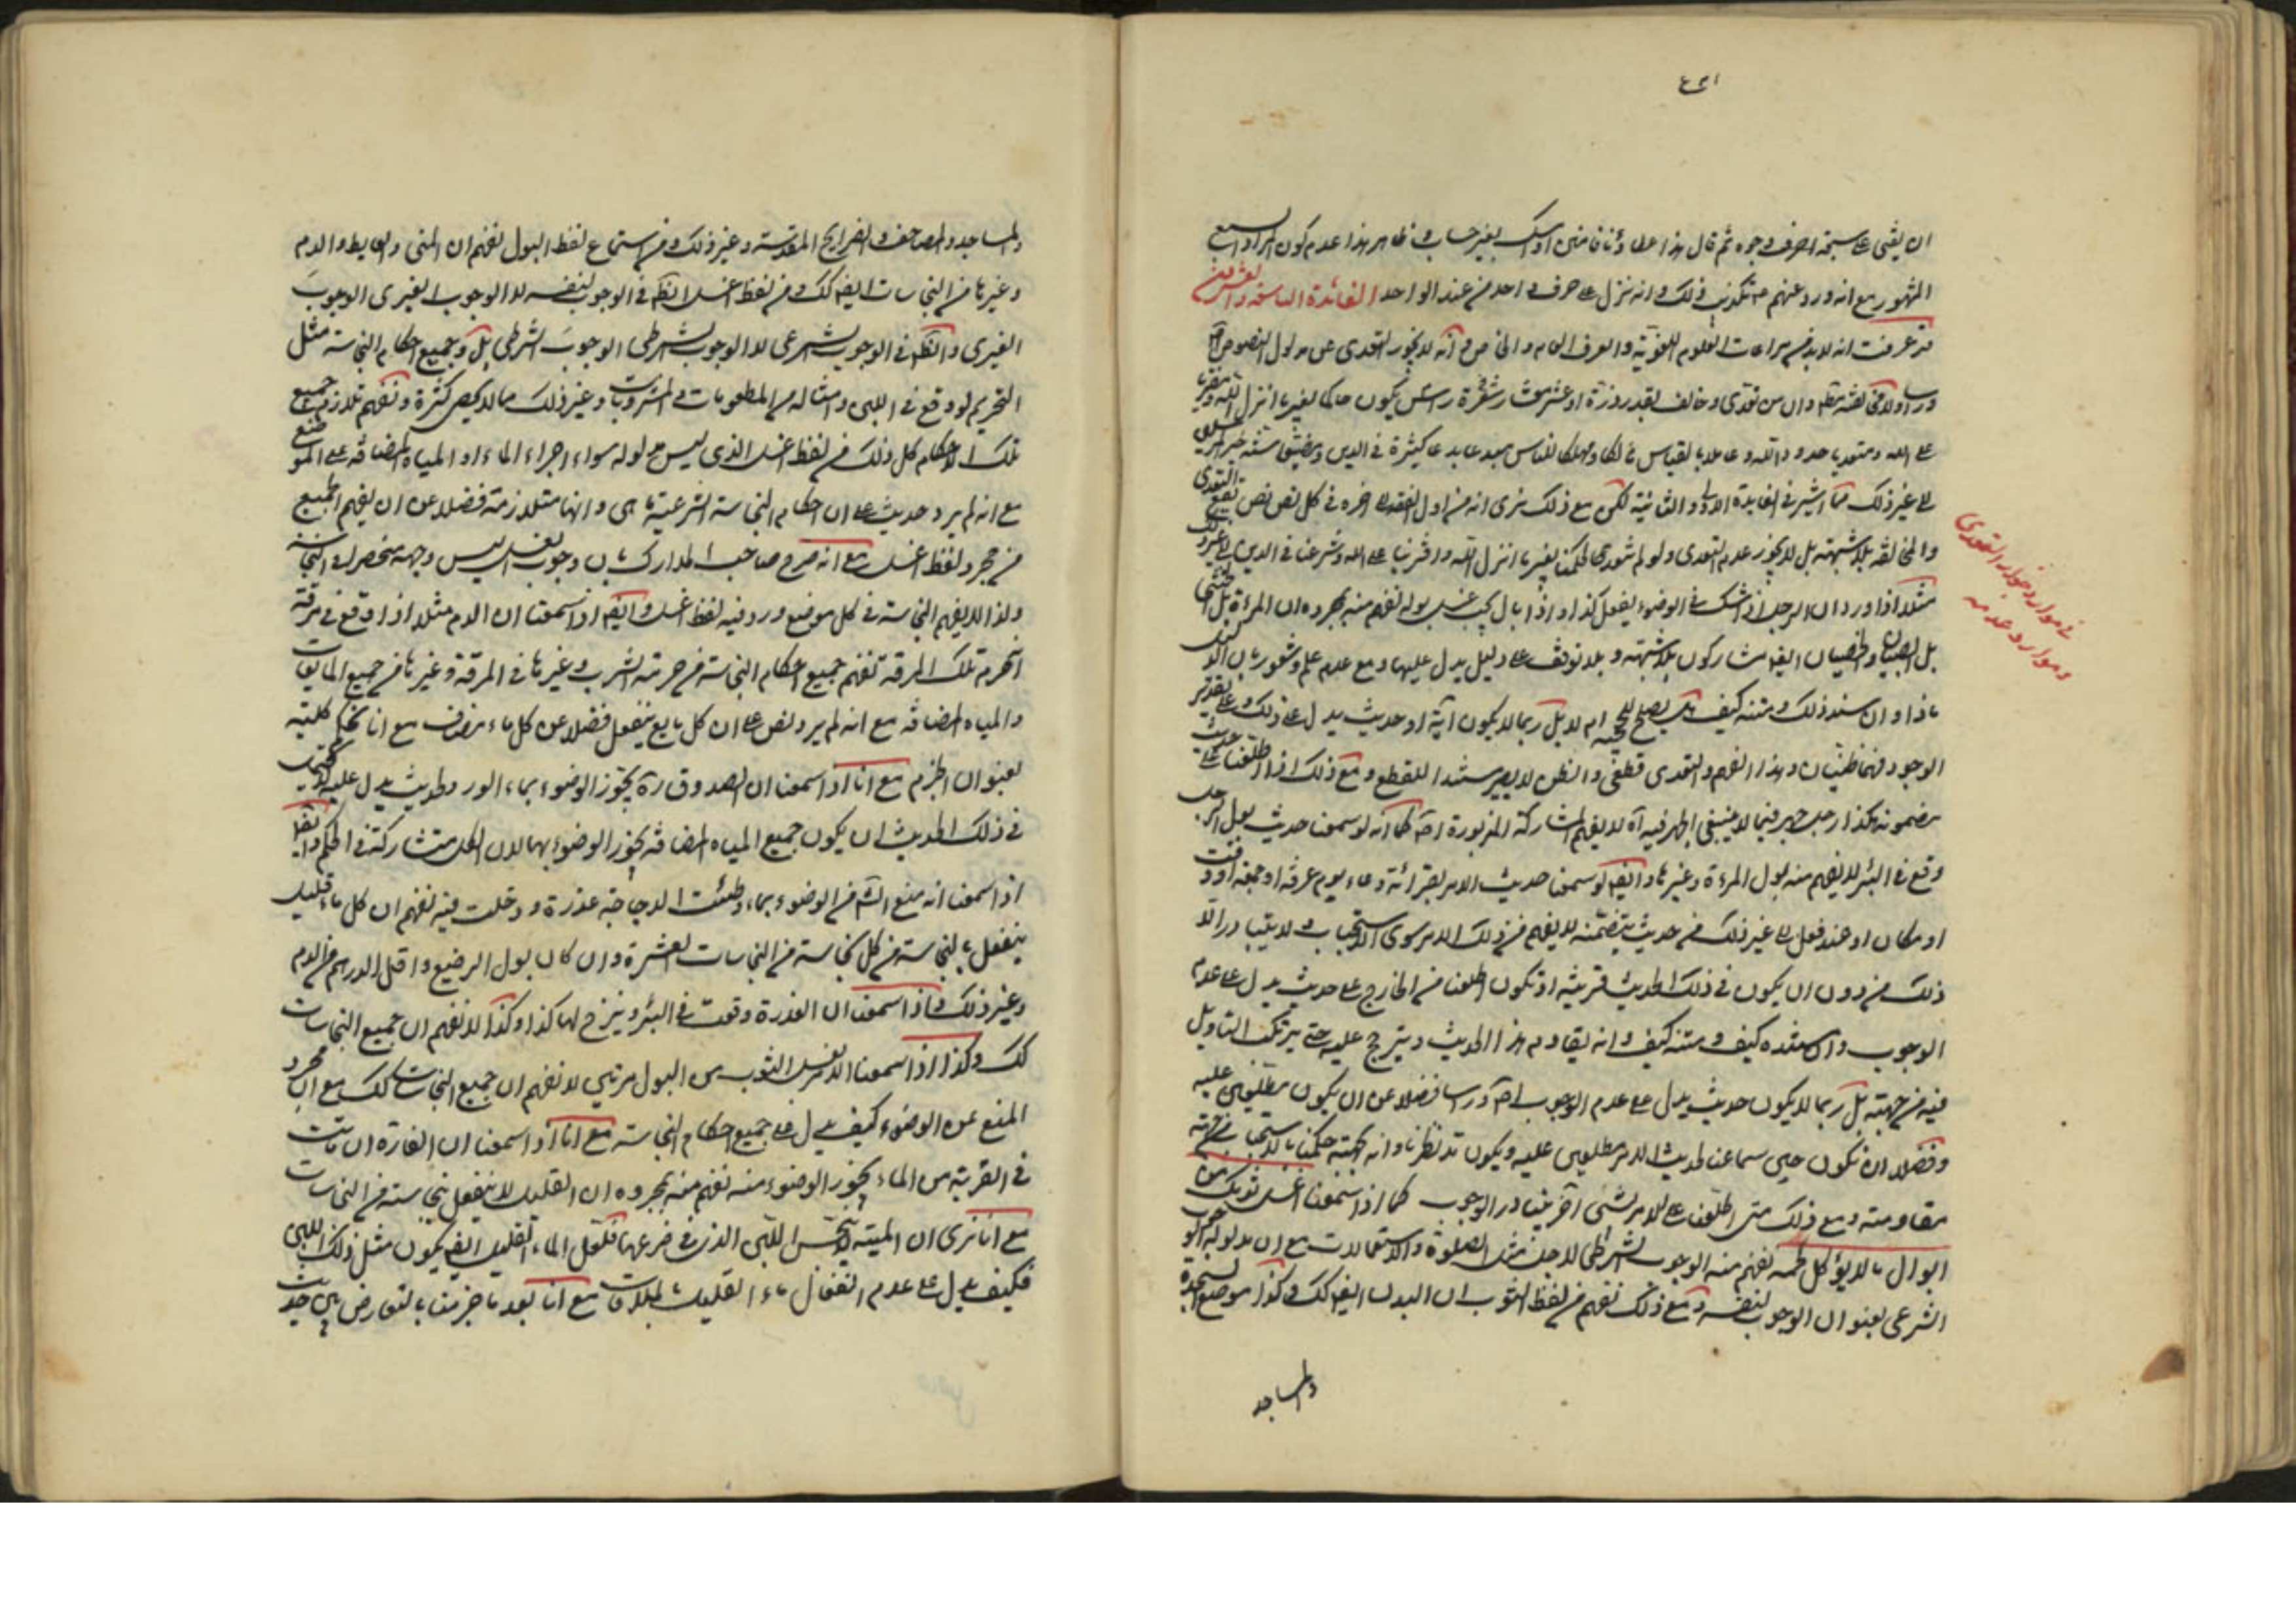 ان يفتى على سبعة احرف وجوه ثم قال هذا عطاؤنا فامنن او امسك بغير حساب وظاهر هذا عدم كون المراد السبع
المشهور مع انه ورد عنهم ع تكذيب ذلك وانه نزل على حرف واحد من عند الواحد الفائدة التاسعة والعشرون
قد عرفت انه لا بد من مراعات العلوم اللغوية والعرف العام والخاص وانه لا يجوز التعدى عن مدلول النصوص
وان من تعدى وخالف بقدر ذرة او عشر معشار رأس شعرة يكون حاكما بغير ما انزل الله
على الله ومتعديا حدود الله وعاملا بالقياس هالكا ومهلكا للناس مبدعا بدعا كثيرة فى الدين
الى غير ذلك مما اشير فى الفايدة الاولى والثانية لكن مع ذلك نرى انه من اول الفقه الى اخره فى كل نص نص يقع التعدى
والمخالفة بلا شبهة بل لا يجوز عدم التعدى ولو لم نتعدى لحكمنا بغير ما انزل الله وافترينا على الله وشرعنا فى الدين الى غير ذلك
مثلا اذا ورد ان الرجل اذا شك فى الوضوء يفعل كذا واذا بال يجب غسل بوله نفهم منه بمجرده ان المرءة بل الخنثى
بل الصبيان والخصيان ايضا مشاركون بلا شبهة وبلا توقف على دليل يدل عليها ومع عدم علم وشعور بان
ماذا وان سند ذلك ومتنه كيف هل يصلح للحجية ام لا بل ربما لا يكون آية او حديث يدل على ذلك وعلى تقدير
الوجود فهما ظنيان وهذا الفهم والتعدى قطعى والظن لا يصير مستندا للقطع ومع ذلك اذا اطلعنا على حديث
مضمونه هكذا رجل جهر فيما لا ينبغى الجهر فيه اه لا يفهم المشاركة المزبورة اصلا كما انه لو سمعنا حديث بول الرجل
وقع فى البئر لا يفهم منه بول المرءة وغيرها وايضا لو سمعنا حديث الامر بقرائة دعاء يوم عرفة او جمعة او وقت
او مكان او عند فعل الى غير ذلك من حديث يتضمنه لا يفهم من ذلك الامر سوى الاستحباب ولا يتبادر الا
ذلك من دون ان يكون فى ذلك الحديث قرينة او تكون اطلعنا من الخارج على حديث يدل على عدم
الوجوب وان سنده كيف ومتنه كيف وانه يقاوم هذا الحديث ويترجح عليه حتى يرتكب التاويل
فيه من جهته بل ربما لا يكون حديث يدل على عدم الوجوب اصلا وراسا فضلا عن ان يكون مطلعين عليه
وفضلا ان نكون حين سماعنا لحديث الامر مطلعين عليه ويكون قد نظرنا وانه بجهته حكمنا بالاستحباب
مقاومته ومع ذلك متى اطلعنا على الامر بشئ آخر يتبادر الوجوب كما اذا سمعنا اغسل ثوبك من
ابوال ما لا يؤكل لحمه نفهم منه الوجوب الشرطى لاجل مثل الصلوة والاستعمالات مع ان مدلوله الوجوب
الشرعى بعنوان الوجوب لنفسه ومع ذلك نفهم من لفظ الثوب ان البدن ايضا كك وكذا موضع السجدة
والمساجد
فى موارد جواز التعدى
وموارد عدمه
والمساجد والمصاحف والضرايح المقدسة وغير ذلك ومن استماع لفظ البول نفهم ان المنى والغايط والدم
وغيرها من النجاسات ايضا كك ومن لفظ اغسل الظاهر فى الوجوب لنفسه لا الوجوب لغيرى الوجوب
الغيرى والظاهر فى الوجوب الشرعى لا الوجوب الشرطى الوجوب الشرطى بل وجميع احكام النجاسة مثل
التحريم لو وقع فى اللبن وامثاله من المطعومات والمشروبات وغير ذلك مما لا يحصى كثرة ونفهم تلازم جميع
تلك الاحكام كل ذلك من لفظ اغسل الذى ليس مدلوله سواء اجراء الماء او المياه المضافة على الموضع
مع انه لم يرد حديث على ان احكام النجاسة الشرعية ما هى وانها متلازمة فضلا عن ان يفهم الجميع
من مجرد لفظ اغسل مع انه صرح صاحب المدارك بان وجوب الغسل ليس وجهه منحصرا فى النجاسة
ولذا لا يفهم النجاسة فى كل موضع ورد فيه لفظ اغسل وايضا اذا سمعنا ان الدم مثلا اذا وقع فى مرقة
انحرم تلك المرقة نفهم جميع احكام النجاسة من حرمة الشرب وغيرها فى المرقة وغيرها من جميع المايعات
والمياه المضافة مع انه لم يرد نص على ان كل مايع ينفعل فضلا عن كل ماء مضاف مع انا نحكم كلية
بعنوان الجزم مع انا اذا سمعنا ان الصدوق ره يجوز الوضوء بماء الورد ولحديث يدل عليه
فى ذلك الحديث ان يكون جميع المياه المضافة يجوز الوضوء بها لان الكل متشاركة فى الحكم وايضا
اذا سمعنا انه منع الامام من الوضوء بماء وطئت الدجاجة عذرة ودخلت فيه نفهم ان كل ماء قليل
ينفعل بالنجاسة من كل نجاسة من النجاسات العشرة وان كان بول الرضيع واقل الدرهم من الدم
وغير ذلك واذا سمعنا ان العذرة وقعت فى البئر وينزح لها كذا وكذا لا نفهم ان جميع النجاسات
كك وكذا اذا سمعنا الامر بغسل الثوب من البول مرتين لا نفهم ان جميع النجاسات كك مع ان مجرد
المنع عن الوضوء كيف يدل على جميع احكام النجاسة مع انا اذا سمعنا ان الفارة ان ماتت
فى القربة من الماء يجوز الوضوء منه نفهم منه بمجرده ان القليل لا ينفعل بنجاسة من النجاسات
مع انا نرى ان الميتة لا تنجس اللبن الذى فى ضرعها فلعل الماء القليل ايضا يكون مثل ذلك اللبن
فكيف يدل على عدم انفعال ماء القليل بالملاقات مع انا بعد ما جزمنا بالتعارض بين حديث